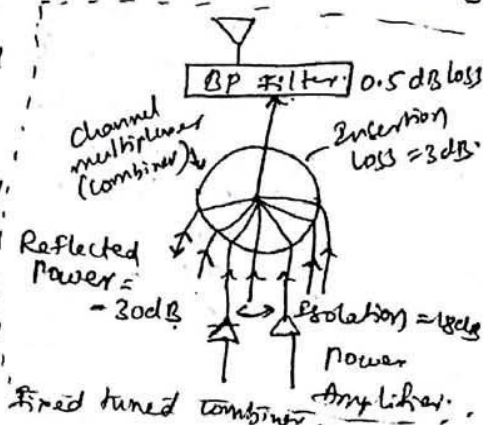 BP Filter. 0.5 dB loss
channel
multiplexer
(combiner)
Insertion
loss = 3dB.
Reflected
Power =
- 30dB
Isolation = 18dB
Power
Amplifier.
Fixed tuned combiner